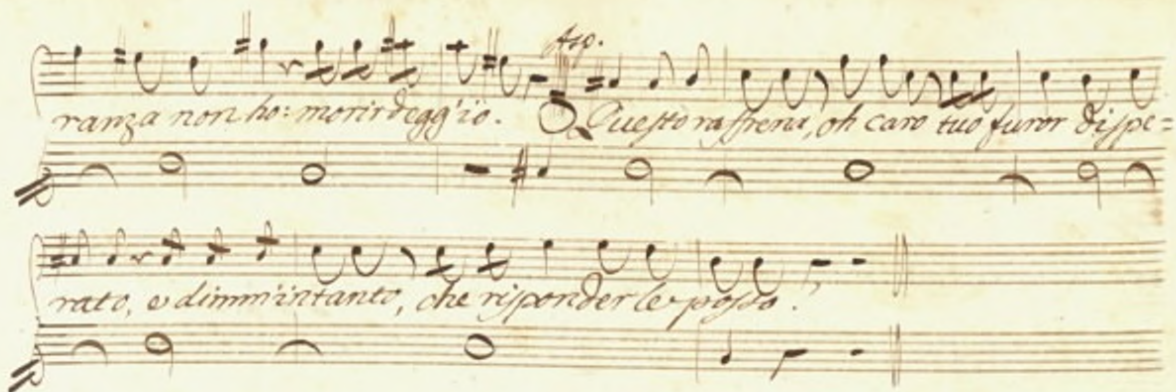 Asp.
ranza non ho: morir degg'io. Questo raffrena, oh caro tuo furor dispe=
rato, e dimm'intanto, che risponder le posso.